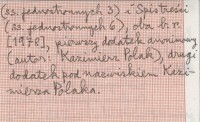 (ss. jednostronnych 3). - Spis treści
(ss. jednostronnych 6), oba b. r.
[1978], pierwszy dodatek anonimowy
(autor Kazimierz Polak), drugi
dodatek pod nazwiskiem Kazi-
mierza Polaka.